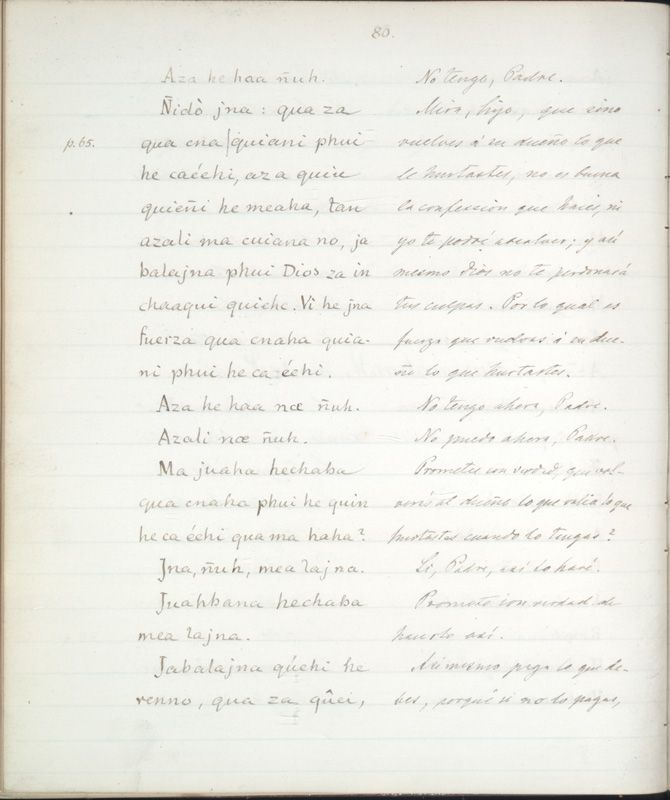 80.
Aza he haa ñuh. No tengo, Padre.
Ñidò jna: qua za Mira, hijo, que sino
p.65. qua cna|quiani phui vuelves á su dueño lo que
he caéchi, aza quiu le hurtastes, no es buena
quieñi he meaha, tan la confession que haceis, ni
azali ma cuiana no, ja yo te podré absolver; y asi
balajna phui Dios za in mesmo Dios no te perdonará
chaaqui quiche. Vi he jna tus culpas. Por lo qual es
fuerza qua cnaha quia- fuerza que vuelvas á su due-
ni phui he ca échi. ño lo que hurtastes.
Aza he haa nœ ñuh. No tengo ahora, Padre.
Azali nœ ñuh. No puedo ahora, Padre.
Ma juaha hechaba Prometes con verdad, que vol-
qua cnaha phui he quin verás al dueño lo que valia lo que
he ca échi qua ma haha? hurtastes cuando lo tengas?
Jna, ñuh, mea lajna. Si, Padre, asi lo haré.
Juahbana hechaba Prometo con verdad de
mea lajna. hacerlo asi.
Jabalajna qúchi he Asimesmo paga lo que de-
renno, qua za qûei, bes, porqué si no lo pagas,